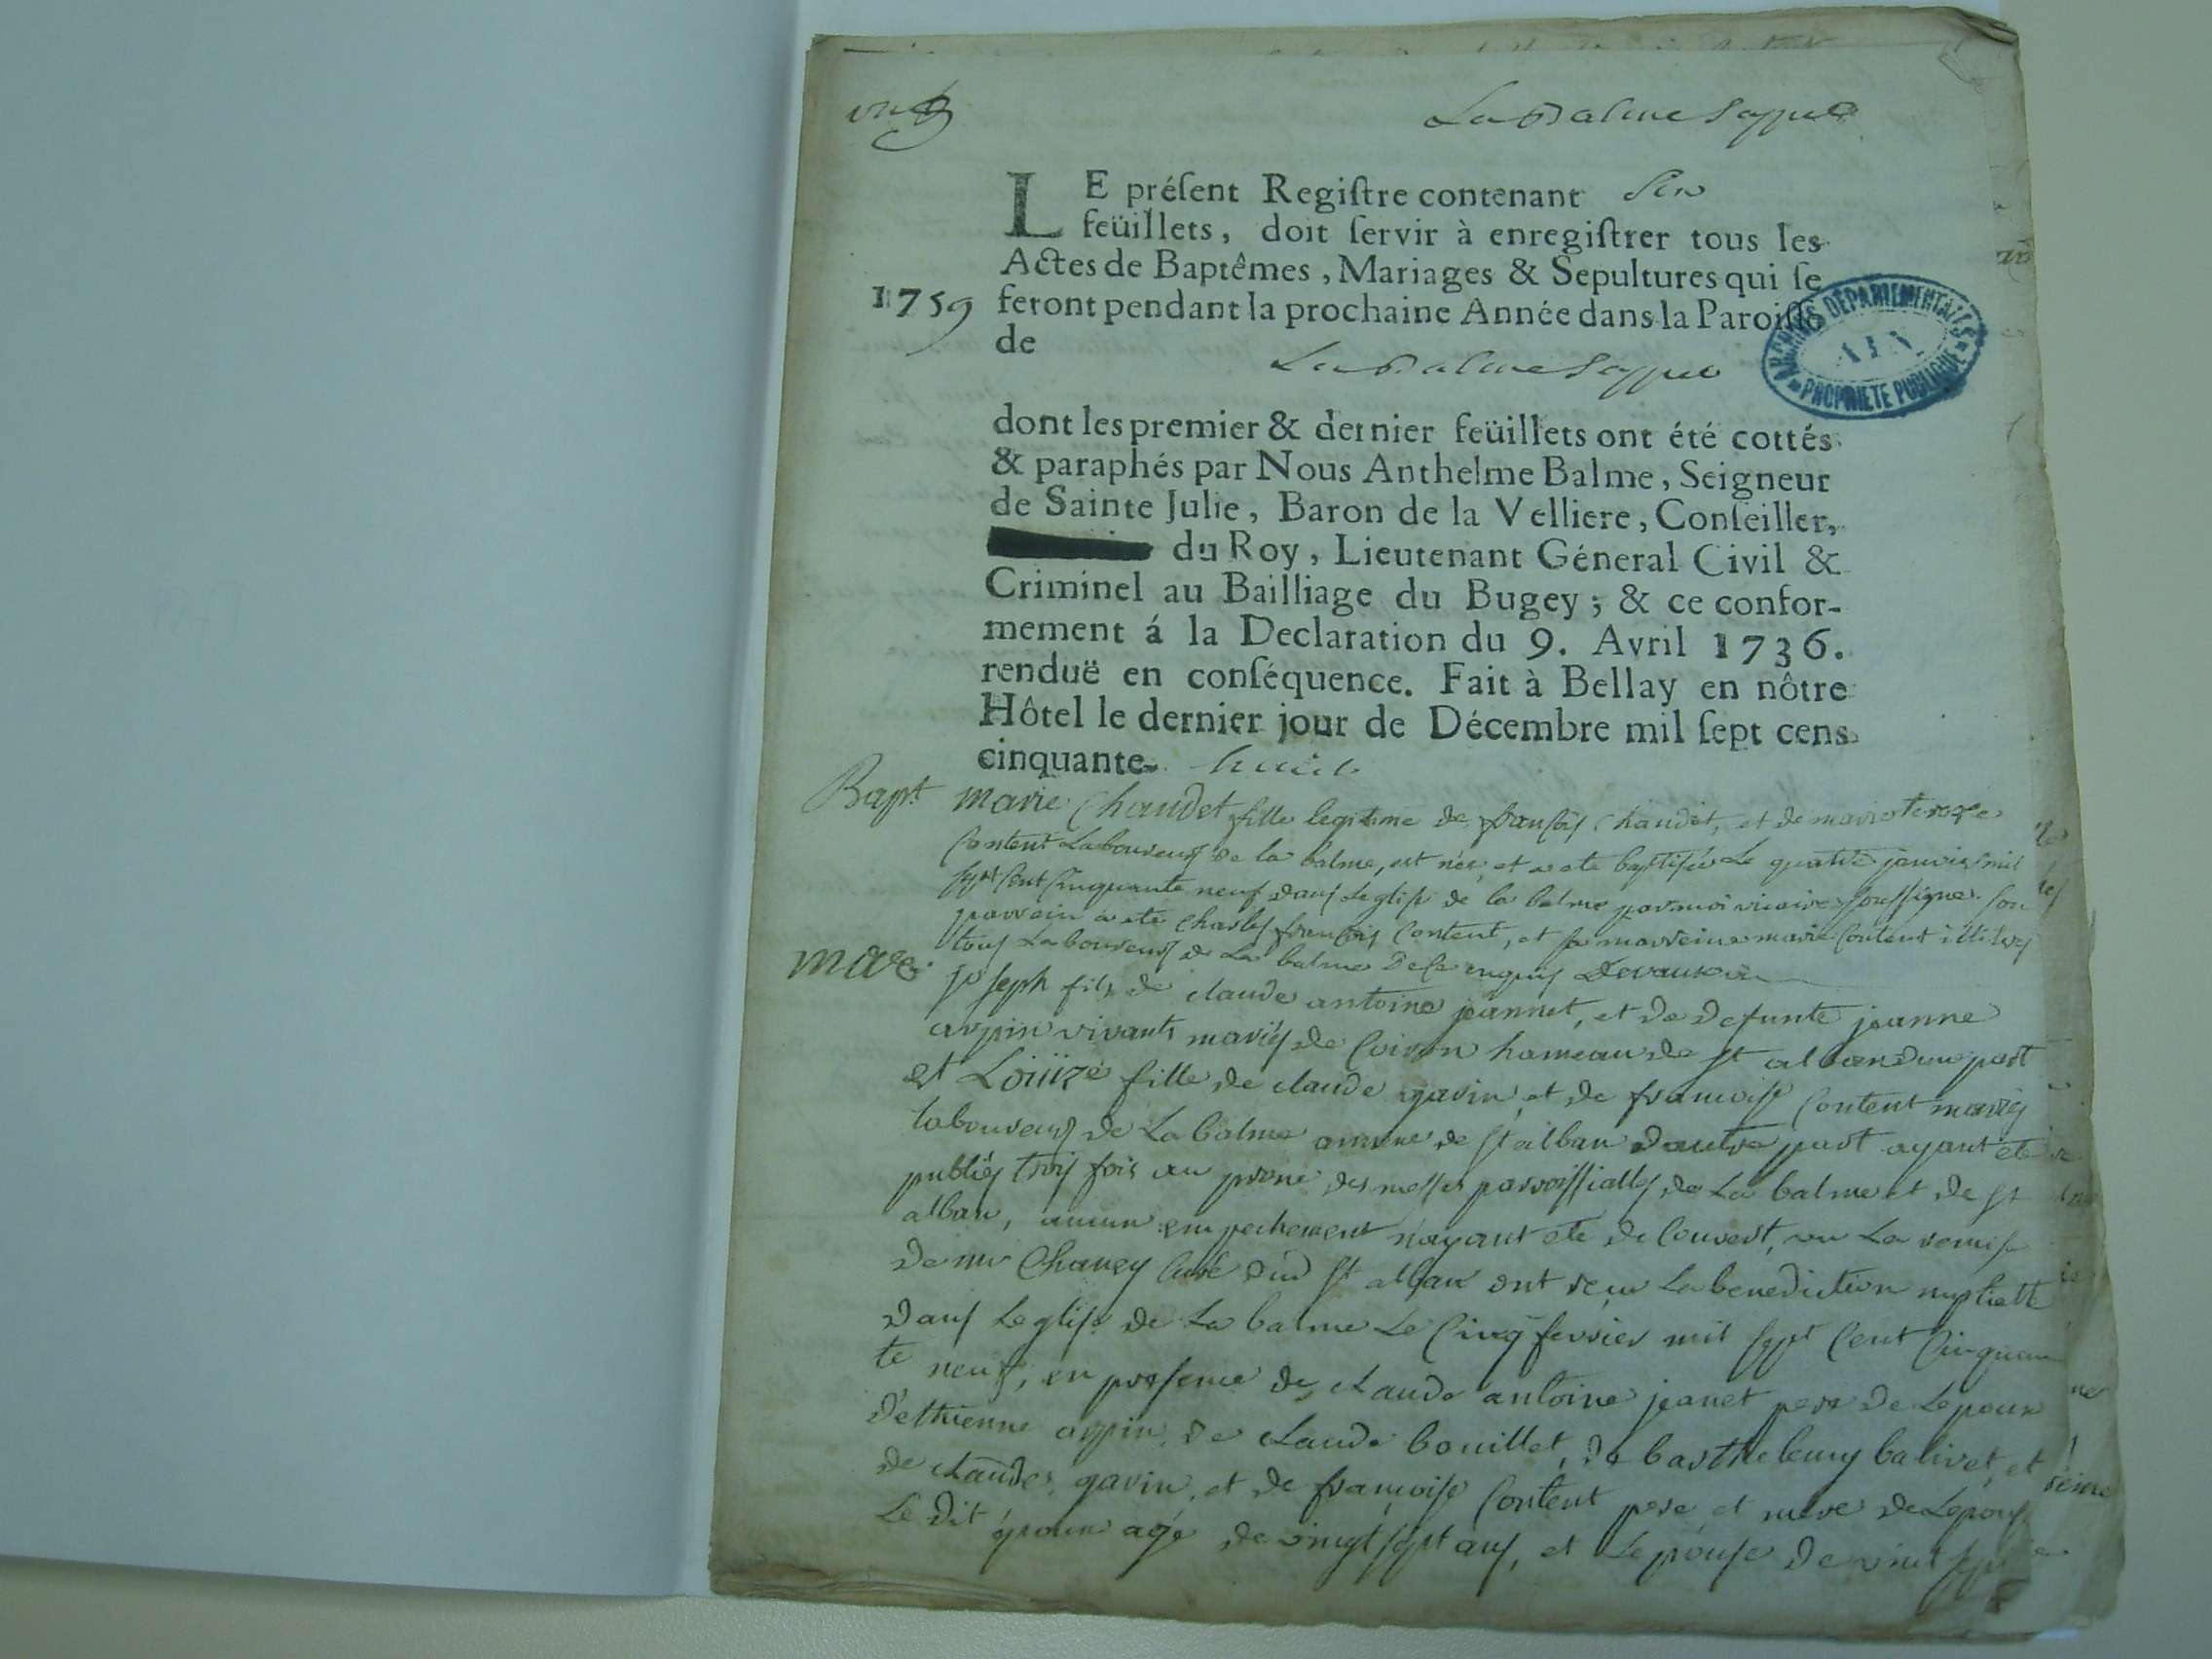 La Balme Sappel
LE préſent Regiſtre contenant Six
feüillets, doit ſervir à enregiſtrer tous les
Actes de Baptêmes, Mariages & Sepultures qui ſe
1759 feront pendant la prochaine Année dans la Paroiſſe
de La Balme Sappel
ARCHIVES DEPARTEMENTALES
AIN
PROPRIETE PUBLIQUE
dont les premier & dernier feüillets ont été cottés
& paraphés par Nous Anthelme Balme, Seigneur
de Sainte Julie, Baron de la Velliere, Conſeiller,
du Roy, Lieutenant Géneral Civil &
Criminel au Bailliage du Bugey; & ce confor-
mement á la Declaration du 9. Avril 1736.
renduë en conſéquence. Fait à Bellay en nôtre
Hôtel le dernier jour de Décembre mil ſept cens
cinquante- huit
Bapt. marie Chaudet fille legitime de françois Chaudet, et de marie
Content Laboureurs de la balme, est née, et a ete baptisée Le quatre janvier mil
sept cent cinquante neuf dans leglise de la balme par moi vicaire soussigné. son
parrein a ete Charles françois Content, et sa marreine marie Content illiteres
tous Laboureurs de La balme de ce enquis
mar. joseph fils de claude antoine jeannet, et de defunte jeanne
arpin vivants mariés de Coiron hameau de st alban dune part
et Loüize fille de claude gavin et de francoise Content mariés
laboureurs de La balme annexe de st alban dautre part ayant ete
publiés trois fois au prone des messes parroissialles de La balme et de st
alban, aucun empechement n'ayant ete decouvert, vu La remise
de mr Chavey Curé dud st alban ont reçu La benediction nuptialle
dans Leglise de La balme Le Cinq fevrier mil sept Cent Cinquan
te neuf, en presence de claude antoine jeanet pere de Lepoux
d'ethienne arpin, de claude bouillet, de barthelemy balivet, et
de claude gavin, et de françoise Content pere et mere de Lepouse
Le dit époux agé de vingt sept ans, et Lepouse de vint sept